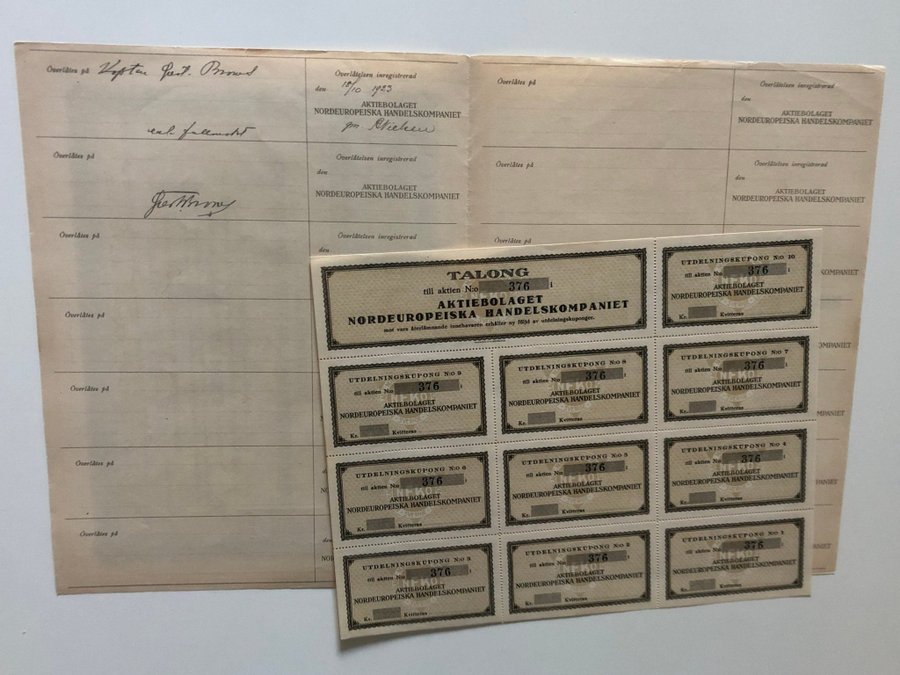 Överlåtes på Kapten Gust. Brows
Överlåtelsen inregistrerad
den 18/10 1923
AKTIEBOLAGET
NORDEUROPEISKA HANDELSKOMPANIET
enl. fullmakt
Överlåtes på
Överlåtelsen inregistrerad
den
AKTIEBOLAGET
NORDEUROPEISKA HANDELSKOMPANIET
Överlåtes på
Överlåtelsen inregistrerad
den
Överlåtes på
Överlåtes på
Överlåtes på
den
Överlåtes på
den
Överlåtes på
Överlåtelsen inregistrerad
den
AKTIEBOLAGET
NORDEUROPEISKA HANDELSKOMPANIET
Överlåtes på
Överlåtelsen inregistrerad
den
AKTIEBOLAGET
NORDEUROPEISKA HANDELSKOMPANIET
Överlåtes på
KOMPANIET
MPANIET
MPANIET
OMPANIET
TALONG
till aktien N:o 376 i
AKTIEBOLAGET
NORDEUROPEISKA HANDELSKOMPANIET
mot vars återlämnande innehavaren erhåller ny följd av utdelningskuponger.
UTDELNINGSKUPONG N:O 10
till aktien N:o 376 i
AKTIEBOLAGET
NORDEUROPEISKA HANDELSKOMPANIET
Kr. Kvitteras
UTDELNINGSKUPONG N:O 9
till aktien N:o 376 i
AKTIEBOLAGET
NORDEUROPEISKA HANDELSKOMPANIET
Kr. Kvitteras
UTDELNINGSKUPONG N:O 8
till aktien N:o 376 i
AKTIEBOLAGET
NORDEUROPEISKA HANDELSKOMPANIET
Kr. Kvitteras
UTDELNINGSKUPONG N:O 7
till aktien N:o 376 i
AKTIEBOLAGET
NORDEUROPEISKA HANDELSKOMPANIET
Kr. Kvitteras
UTDELNINGSKUPONG N:O 6
till aktien N:o 376 i
AKTIEBOLAGET
NORDEUROPEISKA HANDELSKOMPANIET
Kr. Kvitteras
UTDELNINGSKUPONG N:O 5
till aktien N:o 376 i
AKTIEBOLAGET
NORDEUROPEISKA HANDELSKOMPANIET
Kr. Kvitteras
UTDELNINGSKUPONG N:O 4
till aktien N:o 376 i
AKTIEBOLAGET
NORDEUROPEISKA HANDELSKOMPANIET
Kr. Kvitteras
UTDELNINGSKUPONG N:O 3
till aktien N:o 376 i
AKTIEBOLAGET
NORDEUROPEISKA HANDELSKOMPANIET
Kr. Kvitteras
UTDELNINGSKUPONG N:O 2
till aktien N:o 376 i
AKTIEBOLAGET
NORDEUROPEISKA HANDELSKOMPANIET
Kr. Kvitteras
UTDELNINGSKUPONG N:O 1
till aktien N:o 376 i
AKTIEBOLAGET
NORDEUROPEISKA HANDELSKOMPANIET
Kr. Kvitteras